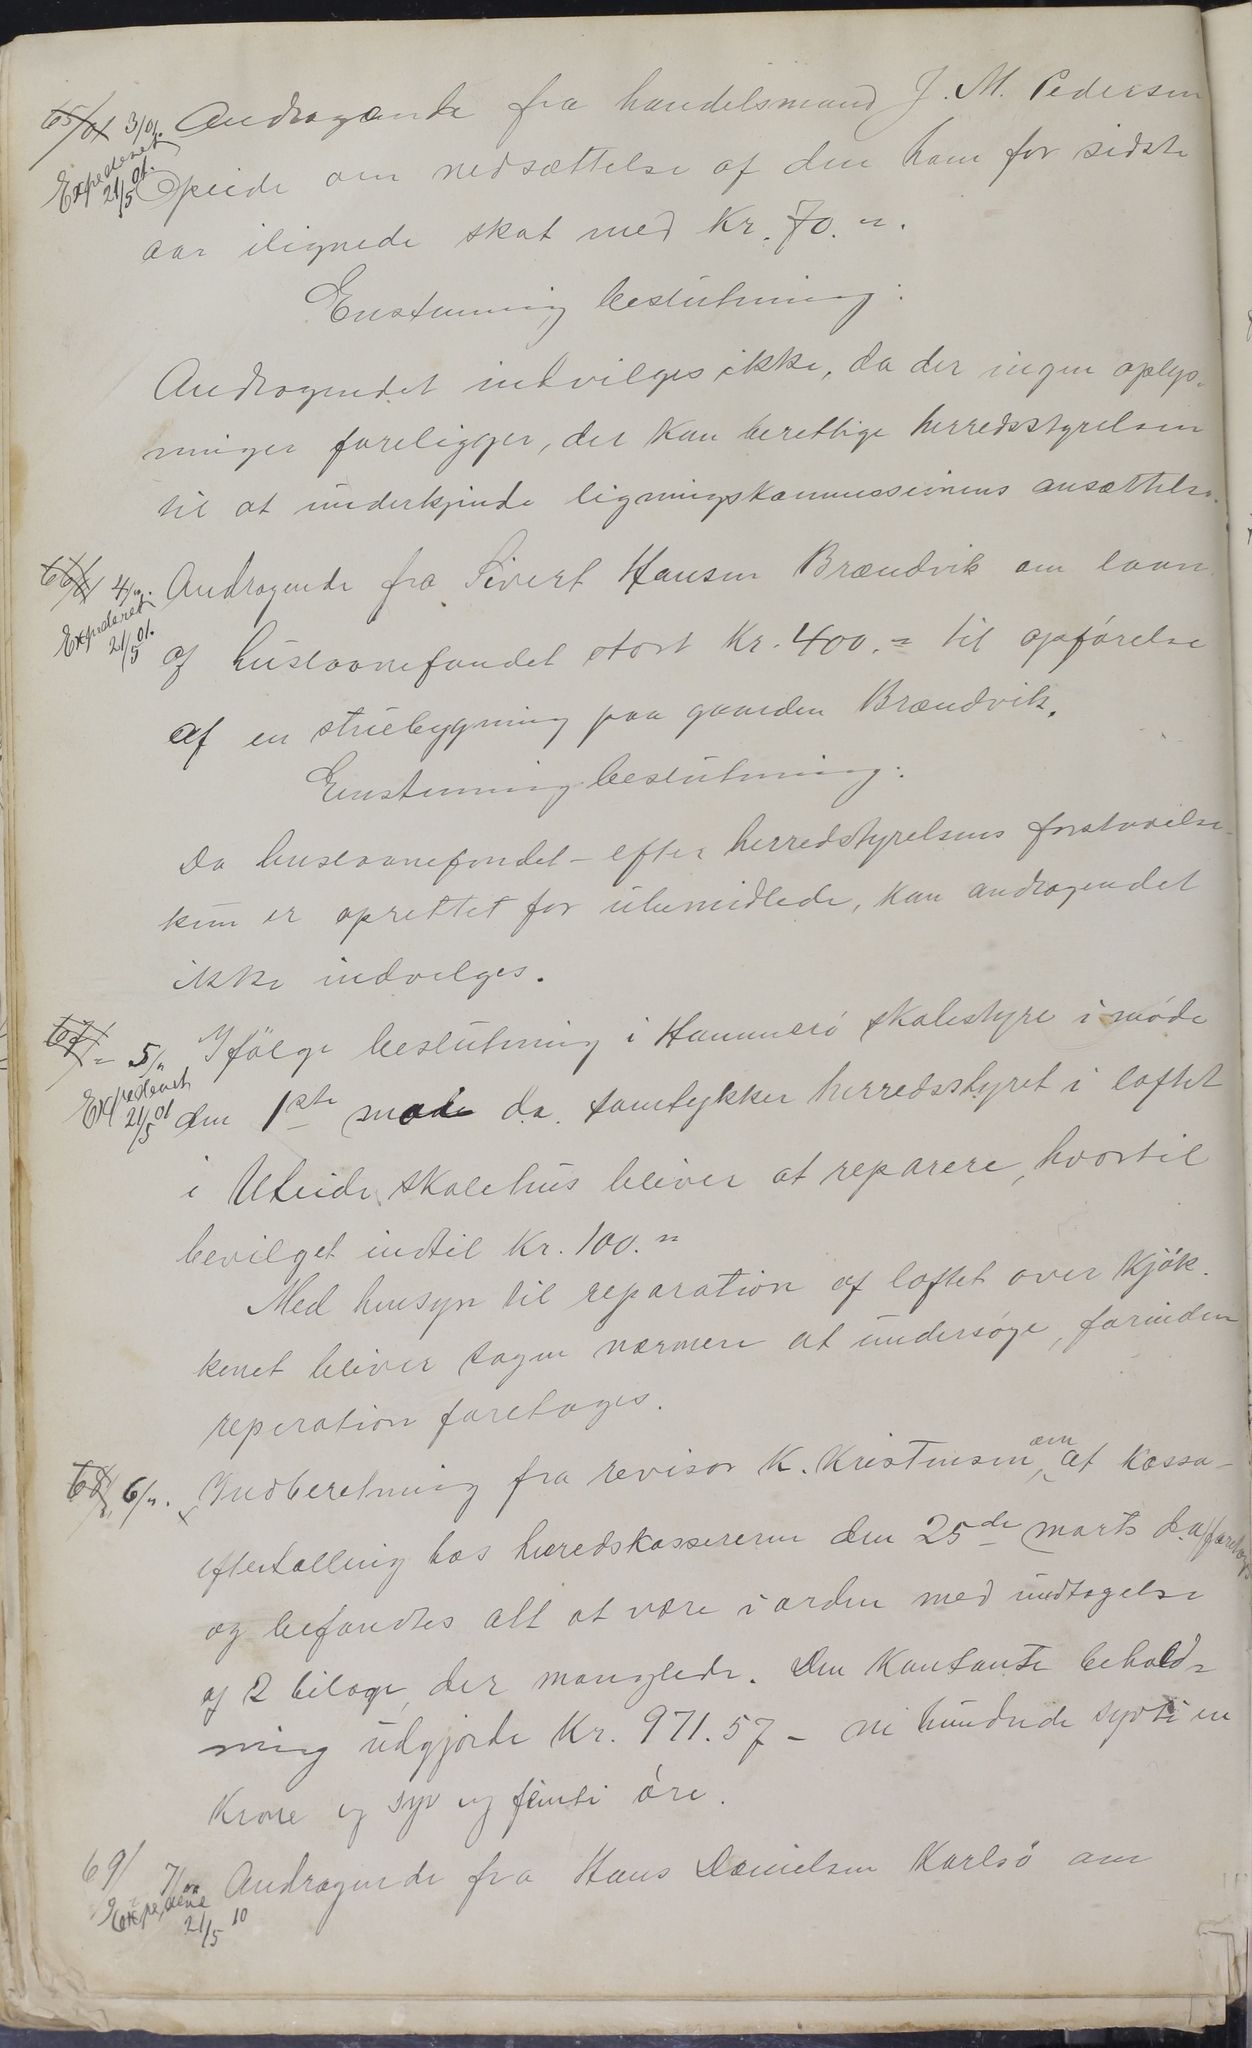 65/01 3/01. Andragende fra handelsmand J. M. Pedersen
Expederet 21/5 01. Opeide om nedsættelse af den ham for sidste
aar ilignede skat med Kr. 70.".
Enstemmig beslutning:
Andragendet indvilges ikke, da der ingen oplys-
ninger foreligger, der kan berettige herredsstyrelsen
til at underkjende ligningskommissionens ansættelse.
66/01 4/". Andragende fra Sivert Hansen Brændvik om laan
Expederet 21/5 01. af huslaanefondet stort Kr. 400.= til opførelse
af en stuebygning paa gaarden Brændvik.
Enstemmig beslutning:
Da huslaanefondet - efter herredstyrelsens forstaaelse -
kun er oprettet for ubemidlede, kan andragendet
ikke indvilges.
67/" 5/" Ifølge beslutning i Hammerø skolestyre i møde
Expederet 21/5 01 den 1ste mai d.a. samtykker herredsstyret i loftet
i Uteide skolehus bliver at reparere, hvortil
bevilget indtil Kr. 100."
Med hensyn til reparation af loftet over kjøk-
kenet bliver sagen nærmere at undersøge, forinden
reperation foretages.
68/" 6/". Indberetning fra revisor K. Kristensen om, at kassa-
eftertælling hos herredskassereren den 25de marts d.a. foretoges
og befandtes alt at være i orden med undtagelse
af 2 bilage, der manglede. Den kontante behold-
ning udgjorde Kr. 971.57 - ni hundrede sytti en
Krone og syv og femti øre.
69/ 7/" Andragende fra Hans Danielsen Karlsø om
Expederet 21/5 10